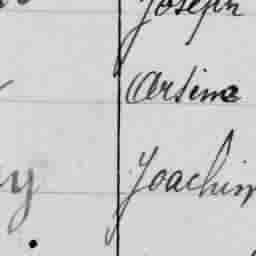 Joseph
Arsène
y Joachim